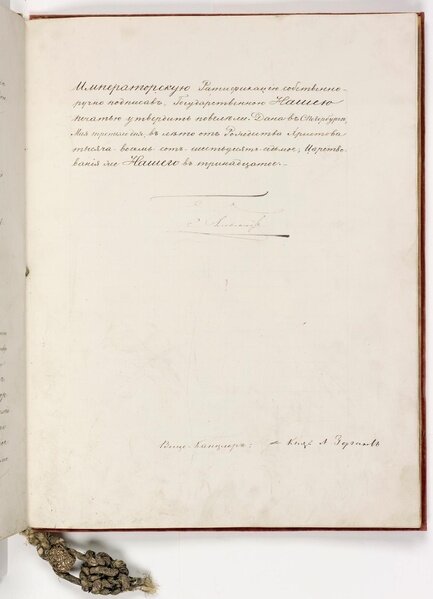 Императорскую Ратификацію собственно-
ручно подписавъ, Государственною Нашею
печатью утвердить повелѣли. Дана въ С.Петербургѣ,
Мая третьяго дня, въ лѣто отъ Рождества Христова
тысяча восемь сотъ шестьдесятъ седьмое, Царство-
ванія же Нашего въ тринадцатое.
Александръ
Вице-Канцлеръ: Князь А. Горчаковъ